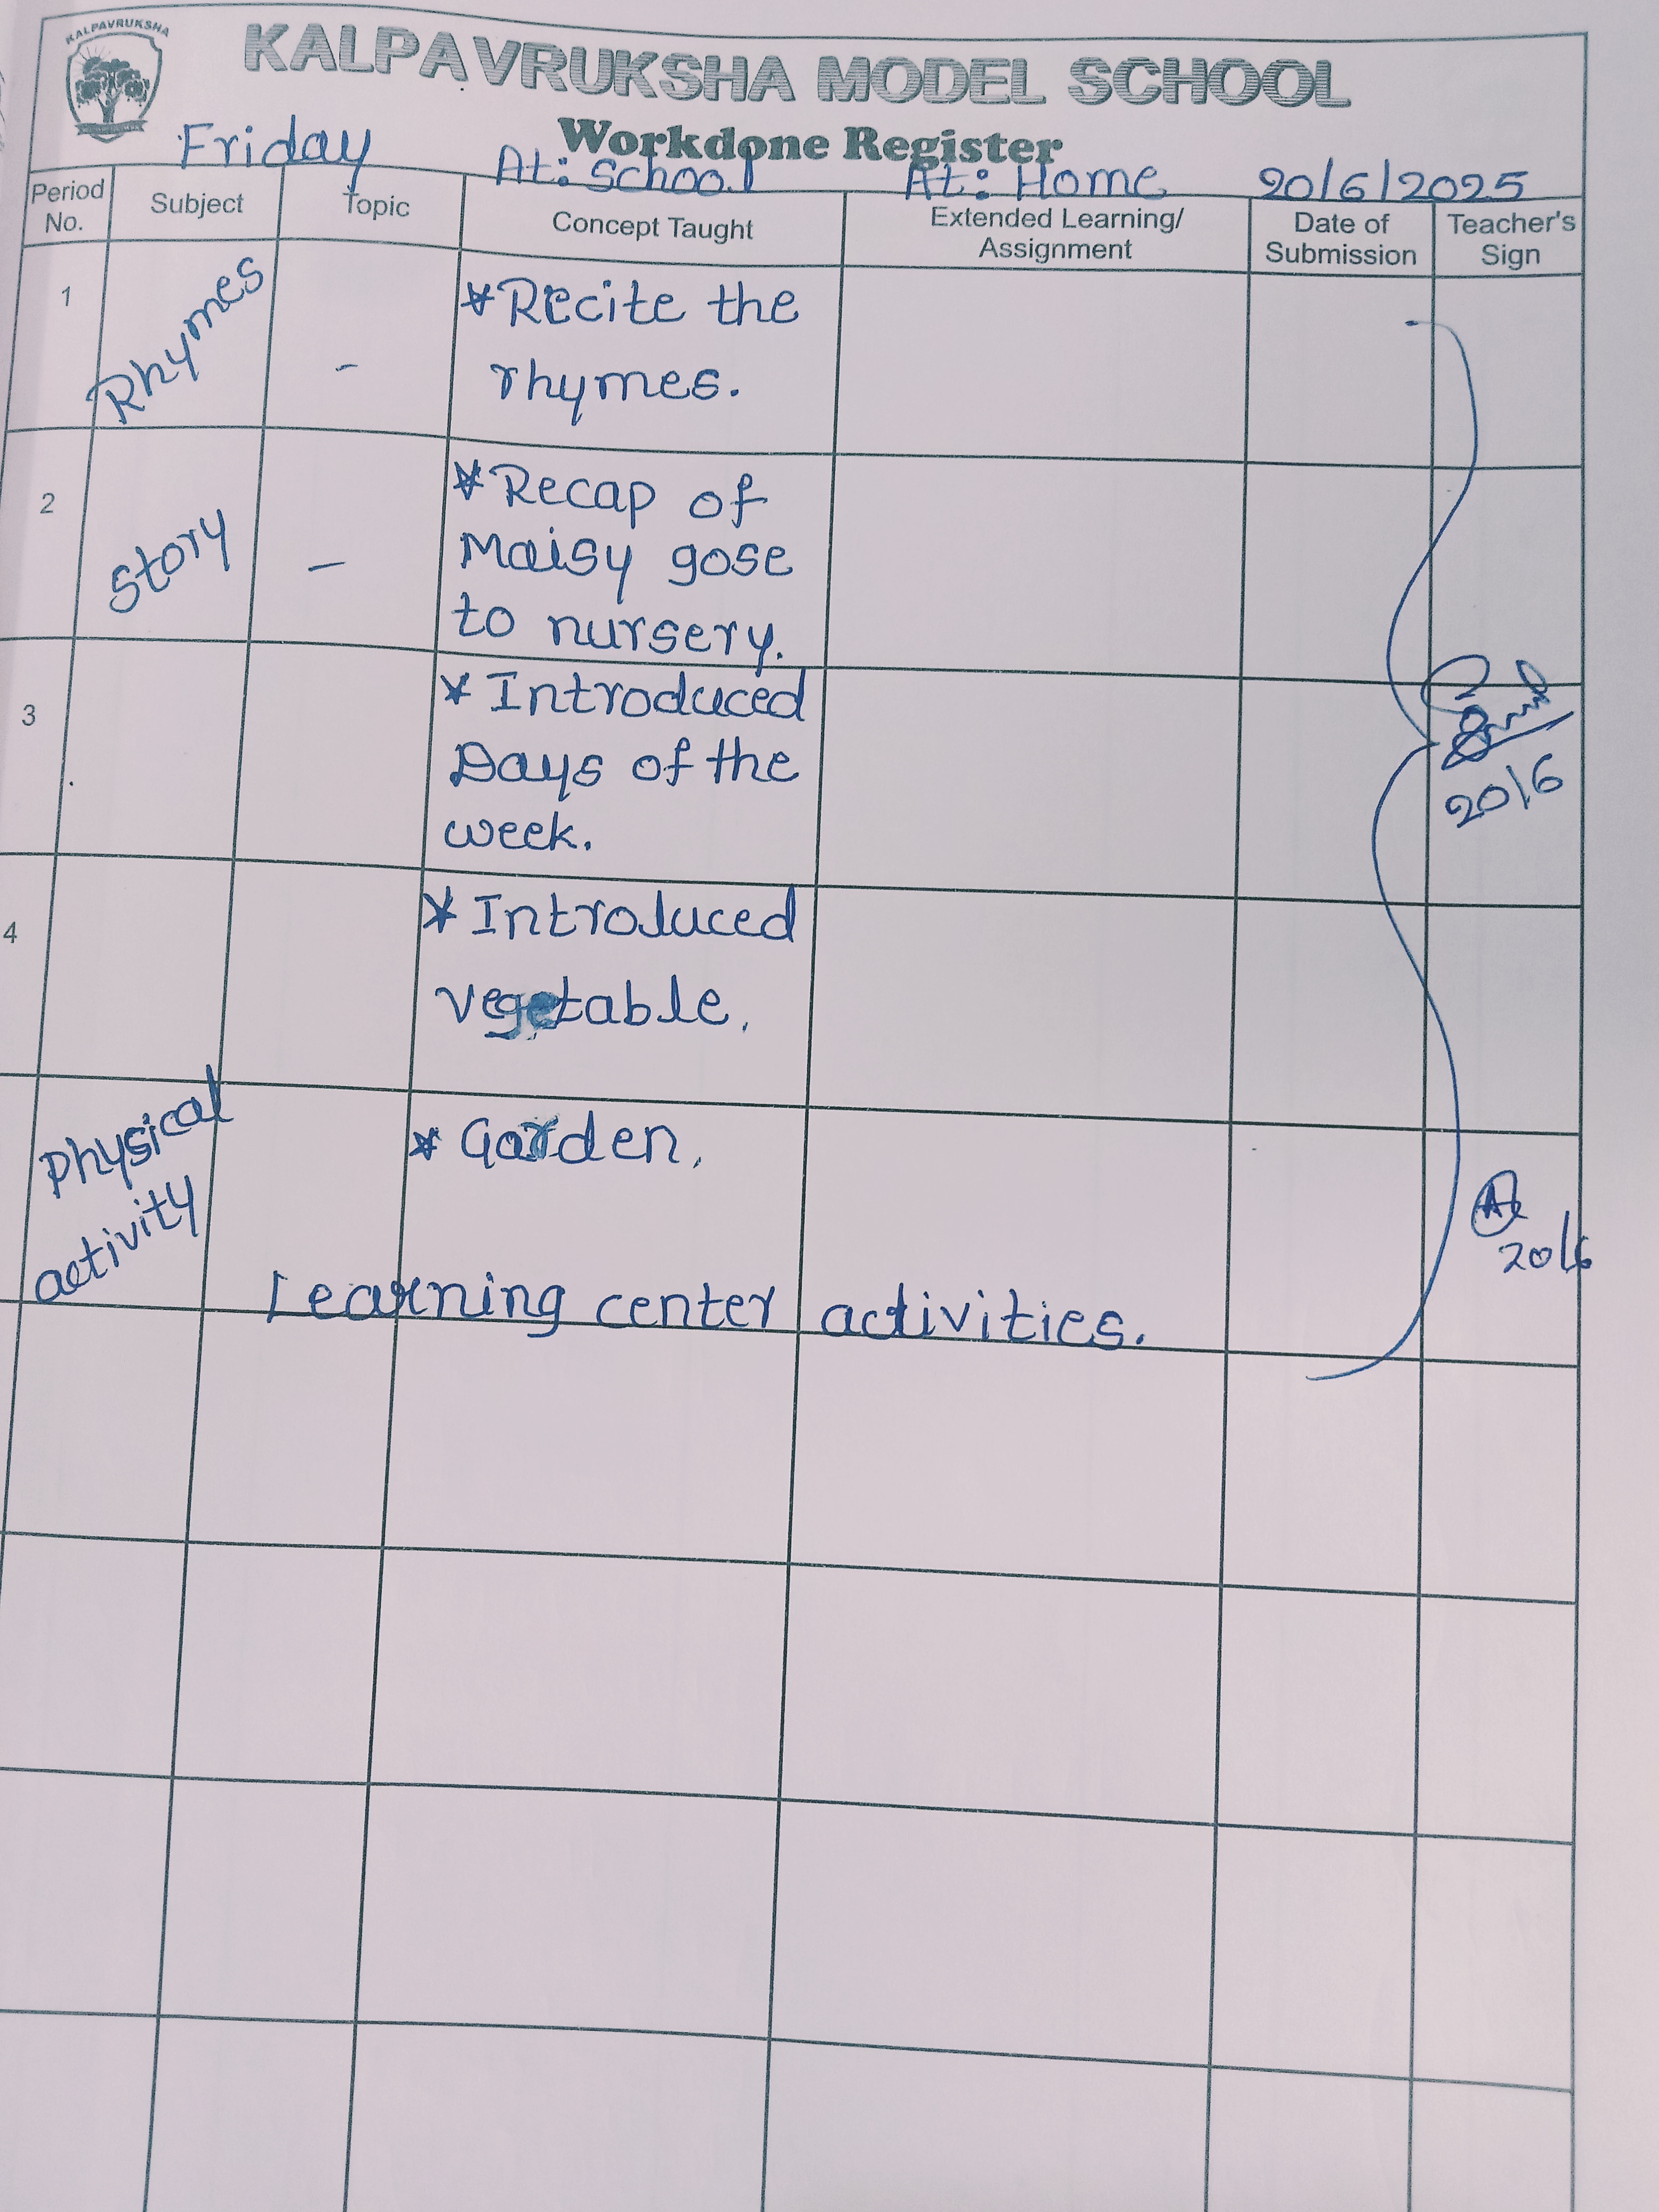 KALPAVRUKSHA
KALPAVRUKSHA MODEL SCHOOL
Workdone Register
Friday At: School At: Home 20/6/2025
Period No. Subject Topic Concept Taught Extended Learning/ Assignment Date of Submission Teacher's Sign
1 Rhymes - *Recite the
rhymes.
2 Story - *Recap of
Maisy gose
to nursery.
3 * Introduced
Days of the
week.
20/6
4 * Introduced
vegetable.
Physical
activity
* Garden.
20/6
Learning center activities.